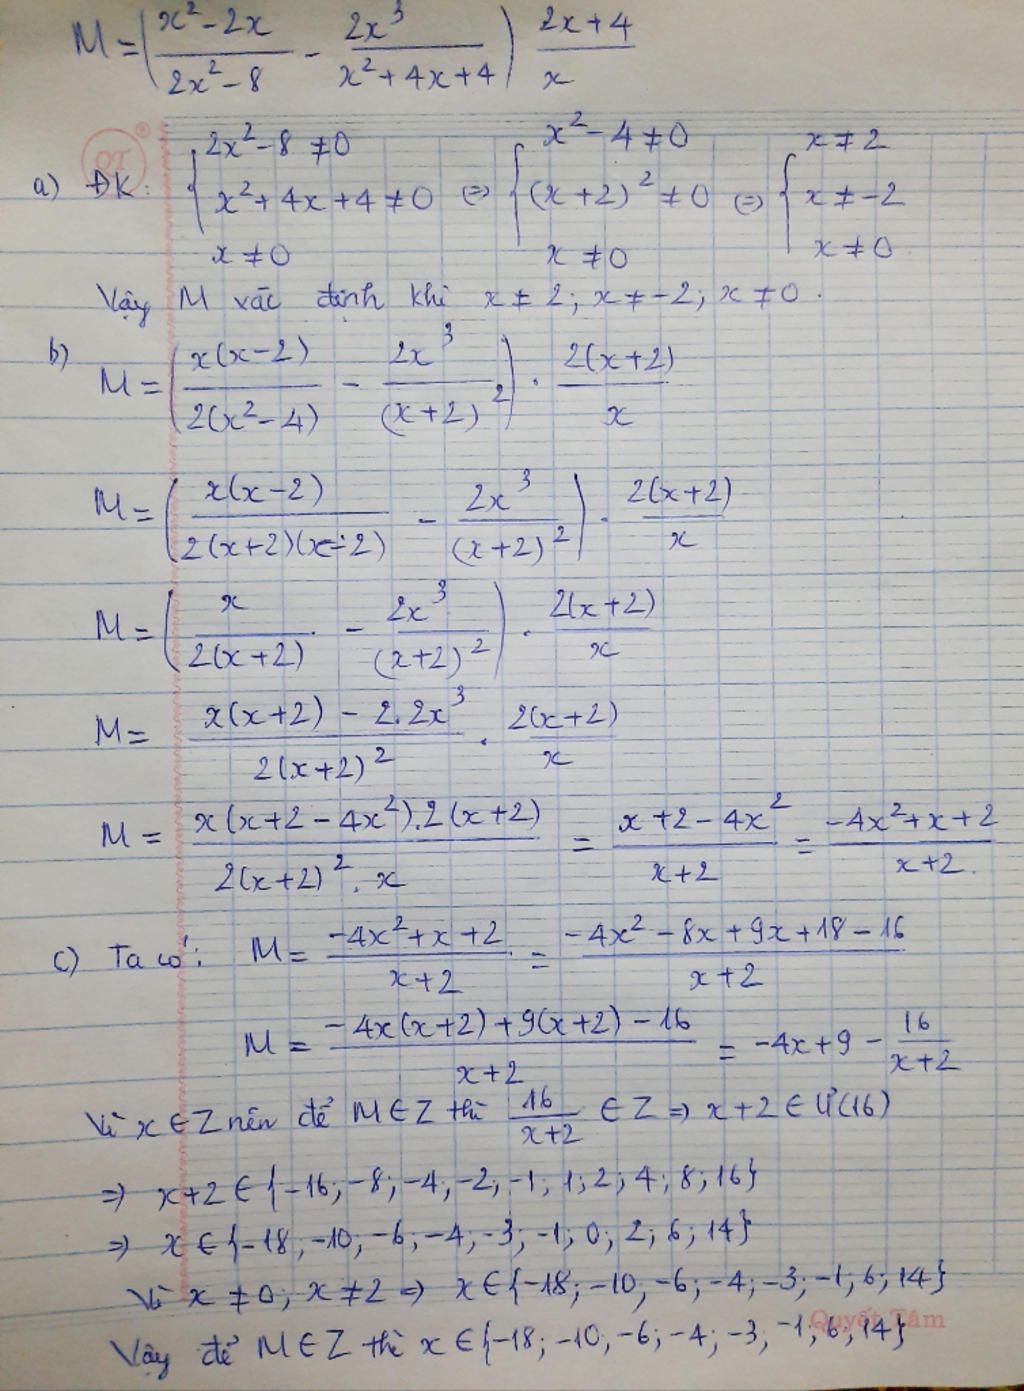 M = (x² - 2x / 2x² - 8 - 2x³ / x² + 4x + 4) 2x + 4 / x
a) ĐK: { 2x² - 8 ≠ 0 ; x² + 4x + 4 ≠ 0 ; x ≠ 0 ⇔ { x² - 4 ≠ 0 ; (x + 2)² ≠ 0 ; x ≠ 0 ⇔ { x ≠ 2 ; x ≠ -2 ; x ≠ 0
Vậy M xác định khi x ≠ 2; x ≠ -2; x ≠ 0.
b) M = (x(x - 2) / 2(x² - 4) - 2x³ / (x + 2)²) . 2(x + 2) / x
M = (x(x - 2) / 2(x + 2)(x - 2) - 2x³ / (x + 2)²) . 2(x + 2) / x
M = (x / 2(x + 2) - 2x³ / (x + 2)²) . 2(x + 2) / x
M = x(x + 2) - 2.2x³ / 2(x + 2)² . 2(x + 2) / x
M = x(x + 2 - 4x²).2(x + 2) / 2(x + 2)².x = x + 2 - 4x² / x + 2 = -4x² + x + 2 / x + 2.
c) Ta có: M = -4x² + x + 2 / x + 2 = -4x² - 8x + 9x + 18 - 16 / x + 2
M = -4x(x + 2) + 9(x + 2) - 16 / x + 2 = -4x + 9 - 16 / x + 2
Vì x ∈ Z nên để M ∈ Z thì 16 / x + 2 ∈ Z ⇒ x + 2 ∈ Ư(16)
⇒ x + 2 ∈ {-16; -8; -4; -2; -1; 1; 2; 4; 8; 16}
⇒ x ∈ {-18; -10; -6; -4; -3; -1; 0; 2; 6; 14}
Vì x ≠ 0; x ≠ 2 ⇒ x ∈ {-18; -10; -6; -4; -3; -1; 6; 14}
Quyết Tâm
Vậy để M ∈ Z thì x ∈ {-18; -10; -6; -4; -3; -1; 6; 14}